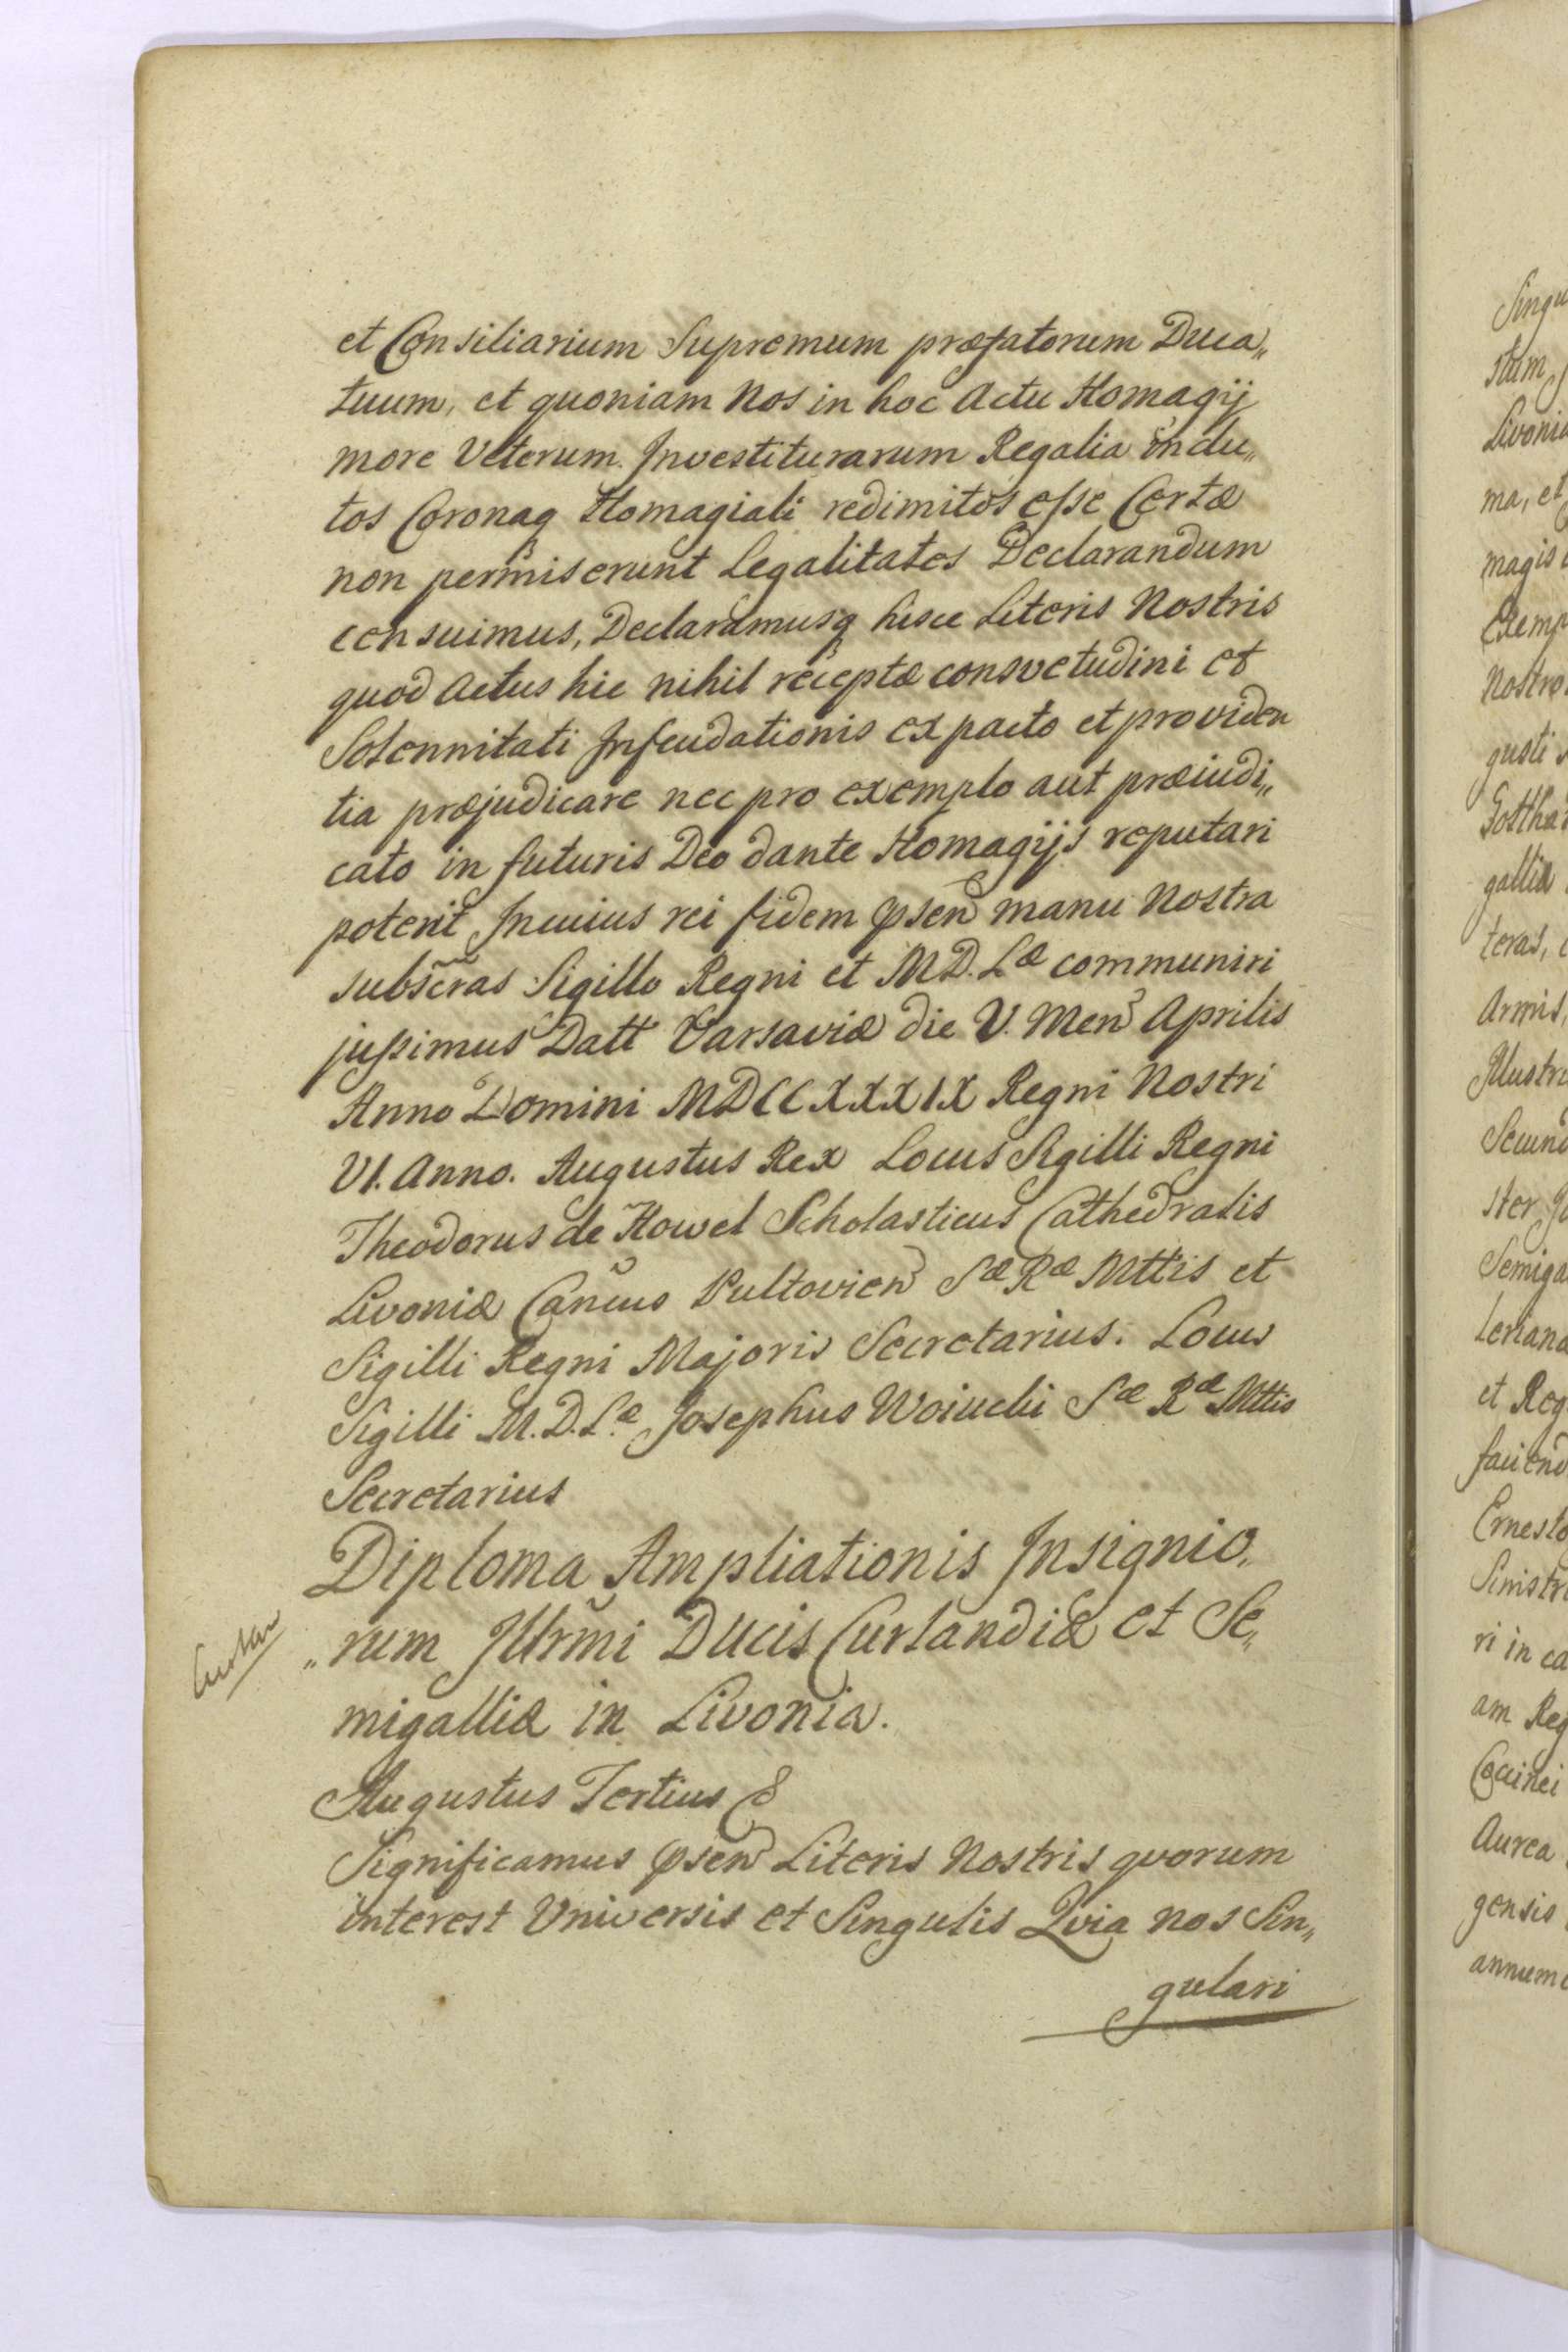 et Consiliarium Supremum præfatorum Duca„
tuum, et quoniam Nos in hoc Actu Homagij
more Veterum Investiturarum Regalia indu„
tos Coronaq Homagiali redimitos esse Certæ
non permiserunt Legalitates Declarandum
censuimus, Declaramusq hisce Literis Nostris
quod Actus hic nihil receptæ consvetudini et
Solennitati Infeudationis ex pacto et providen
tia præjudicare nec pro exemplo aut præiudi„
cato in futuris Deo dante Homagijs reputari
poterit Incuius rei fidem psen manu Nostra
subscras Sigillo Regni et M D. Læ communiri
jussimus Datt Varsaviæ die V. Men Aprilis
Anno Domini MDCCXXXIX Regni Nostri
VI. Anno. Augustus Rex Locus Sigilli Regni
Theodorus de Howel Scholasticus Cathedralis
Livoniæ Cancus Pultovien Sæ Ræ Mttis et
Sigilli Regni Majoris Secretarius. Locus
Sigilli M. D. Læ Josephus Woiucki Sæ Ræ Mttis
Secretarius
Diploma Ampliationis Insignio„
„rum Jllrmi Ducis Curlandiæ et Se„
migalliæ in Livonia.
Augustus Tertius &
Significamus psen Literis Nostris qvorum
interest Universis et Singulis Qvia nos Sin„
gulari
Singu
stum
Livonia
ma, et
magis
Exemp
Nostro
gusti
Gottha
gallia
teras,
Armis
Jllustri
Secund
ster
Semiga
leriana
et Reg
faciend
Ernesto
Sinistr
ri in ca
am Reg
Aurea
gensis
annum